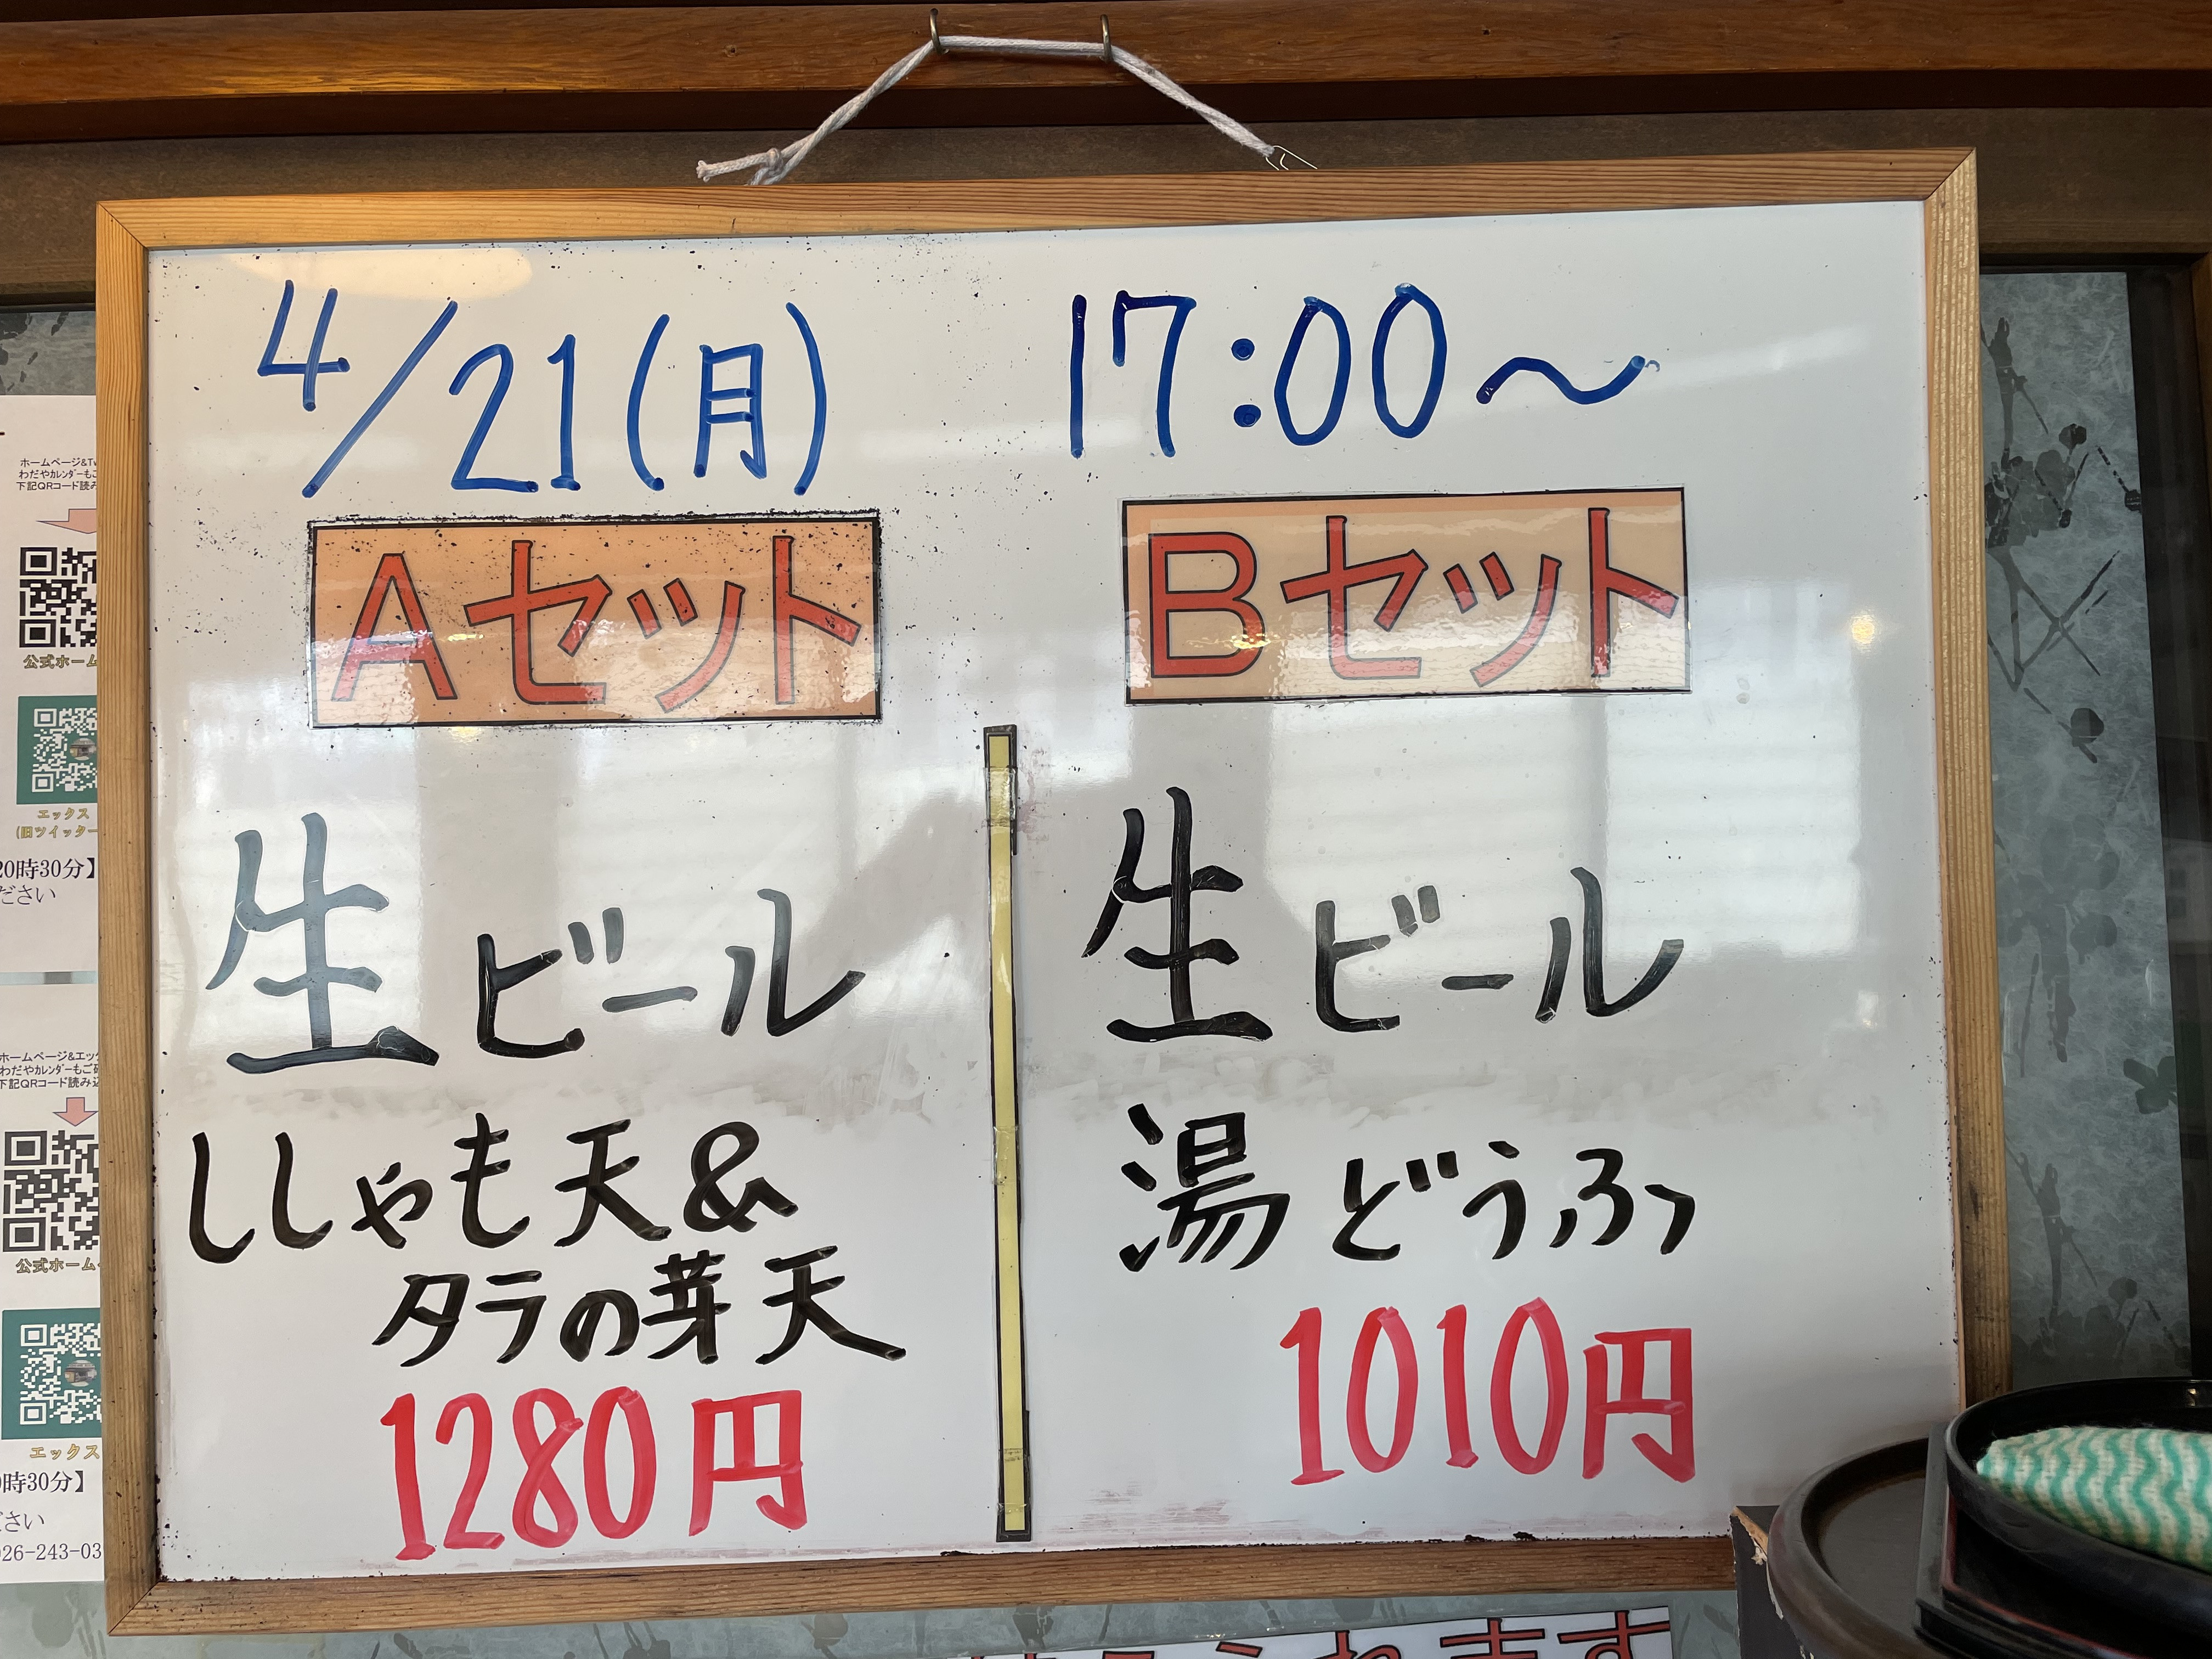 4/21(月) 17:00～
Aセット
生ビール
ししゃも天&
タラの芽天
1280円
Bセット
生ビール
湯どうふ
1010円
ホームページ&Tw
わだやカレンダーもご
下記QRコード読み
公式ホーム
エックス
(旧ツイッター
20時30分】
ださい
ホームページ&エック
わだやカレンダーもご確
下記QRコード読み込
公式ホーム
エックス
時30分】
ださい
026-243-03
ます